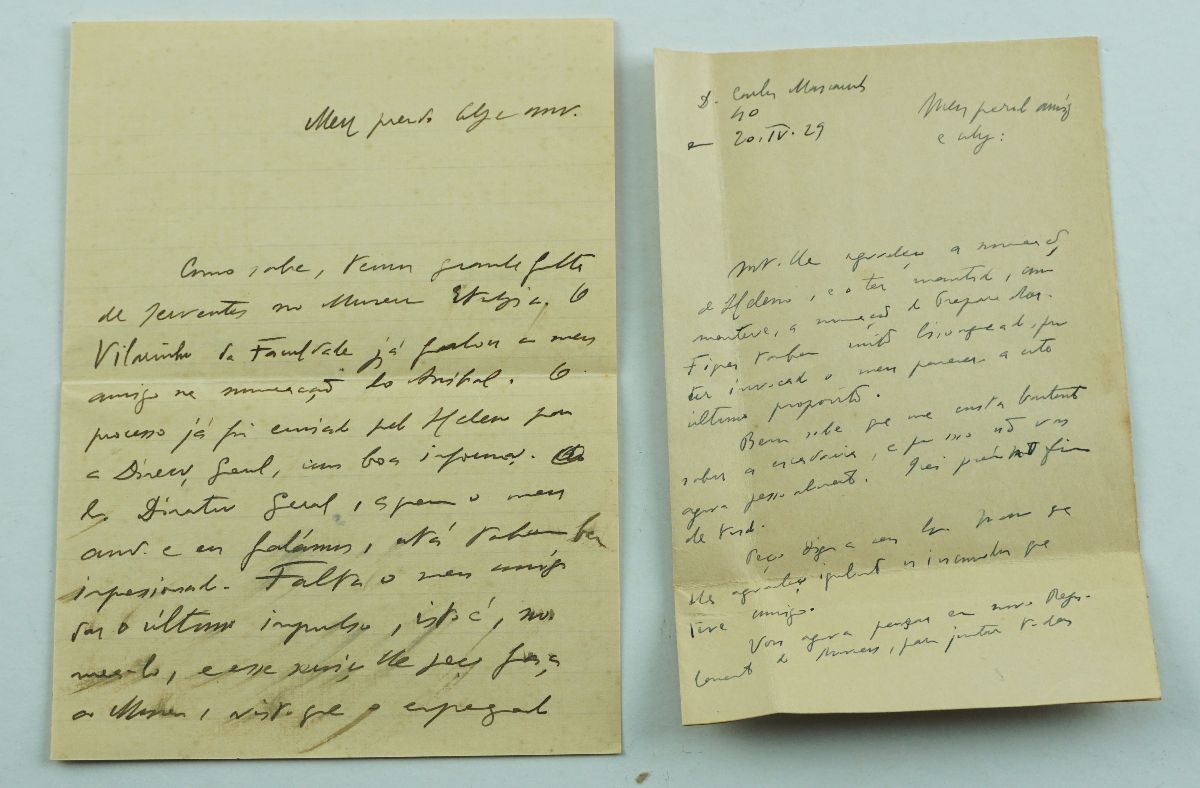 Meu presado Colg.e amº.
Como sabe, temos grande falta
de serventes no Museu Etnlgico. O
Vilarinho da Faculdade já falou a meu
amigo na nomeação do Anibal. O
processo já foi enviado pelo Heleno para
a Direcç. Geral, com boa informaç.
Director Geral, a quem o meu
am.º e eu falámos, está tambem bem
impressionado. Falta o meu amigo
dar o último impulso, isto é, no-
meá-lo, e esse serviço lhe peço faça
ao Museu, visto que o empregado
D. Carlos Mascarenhas
40
20.IV.29
Meu presado amigo
e colg:
Mt. lhe agradeço a nomeação
do Heleno, e o ter mantido, como
manteve, a nomeação do Preparador.
Fiquei tambem muito lisongeado, por
ter invocado o meu parecer a este
último proposito.
Bem sabe que me custa bastante
subir as escadarias, e por isso não vou
agora pessoalmente. Irei
de tarde.
Peço diga a seu
lhe agradeço igualmente os incomodos que
teve comigo.
Vou agora pensar em novo Regu-
lamento do Museu, para juntar todas